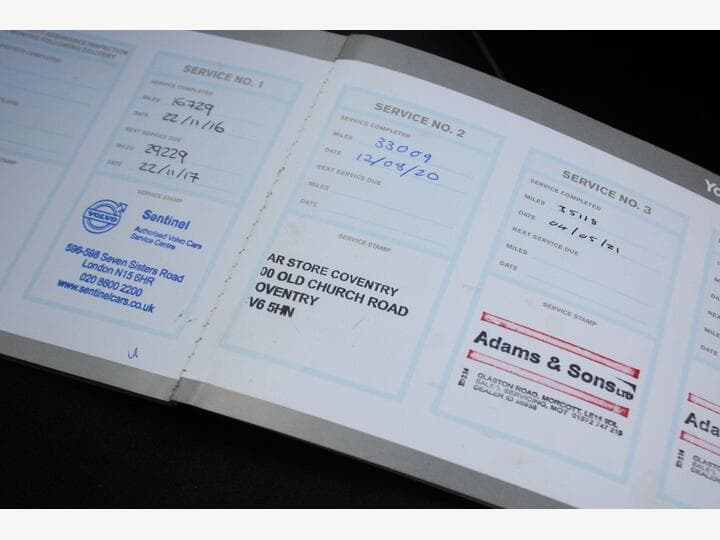 SERVICE NO. 1
SERVICE COMPLETED
MILES 16729
DATE 22/11/16
NEXT SERVICE DUE
MILES 29229
DATE 22/11/17
SERVICE STAMP
VOLVO
Sentinel
Authorised Volvo Cars
Service Centre
596-598 Seven Sisters Road
London N15 6HR
020 8800 2200
www.sentinelcars.co.uk
SERVICE NO. 2
SERVICE COMPLETED
MILES 33009
DATE 12/08/20
NEXT SERVICE DUE
MILES
DATE
SERVICE STAMP
AR STORE COVENTRY
00 OLD CHURCH ROAD
OVENTRY
V6 5HN
SERVICE NO. 3
SERVICE COMPLETED
MILES 35118
DATE 04/05/21
NEXT SERVICE DUE
MILES
DATE
SERVICE STAMP
Adams & Sons LTD
GLASTON ROAD, MORCOTT, LE15 9DL
SALES, SERVICING, MOT 01572 747 215
YO
MILES
DATE
MILES
DATE
Ada
GLASTO
SALES
DEALE